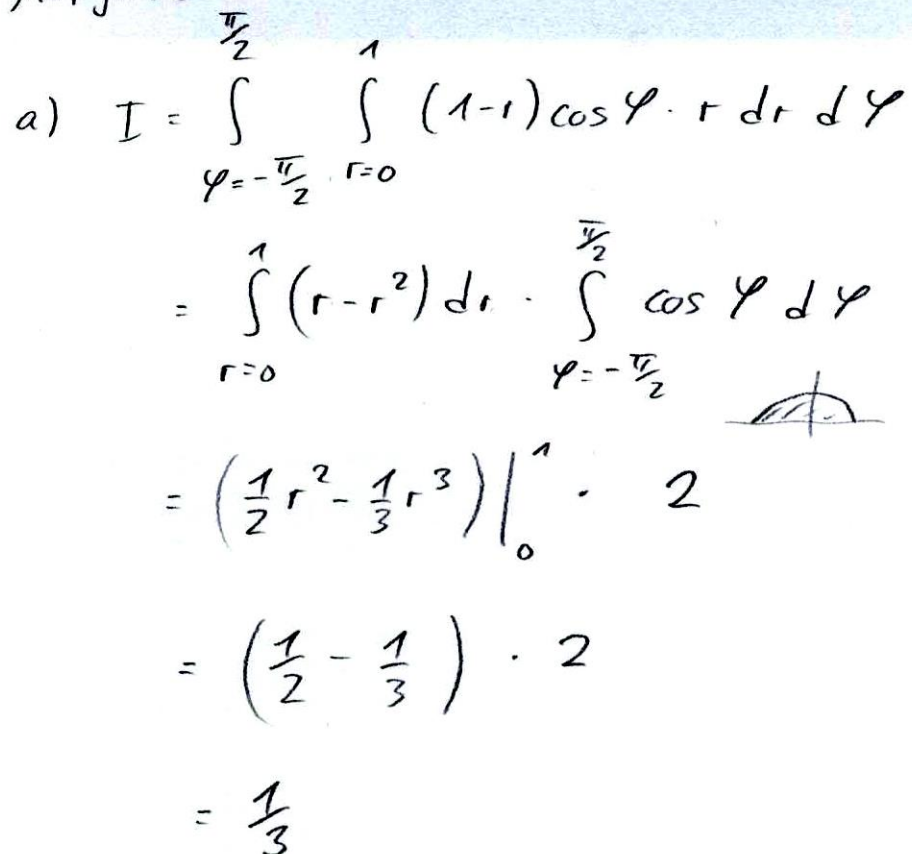 a) I = ∫_{φ=-π/2}^{π/2} ∫_{r=0}^{1} (1-r) cos φ · r dr dφ
= ∫_{r=0}^{1} (r-r²) dr · ∫_{φ=-π/2}^{π/2} cos φ dφ
= (1/2 r² - 1/3 r³) |_0^1 · 2
= (1/2 - 1/3) · 2
= 1/3